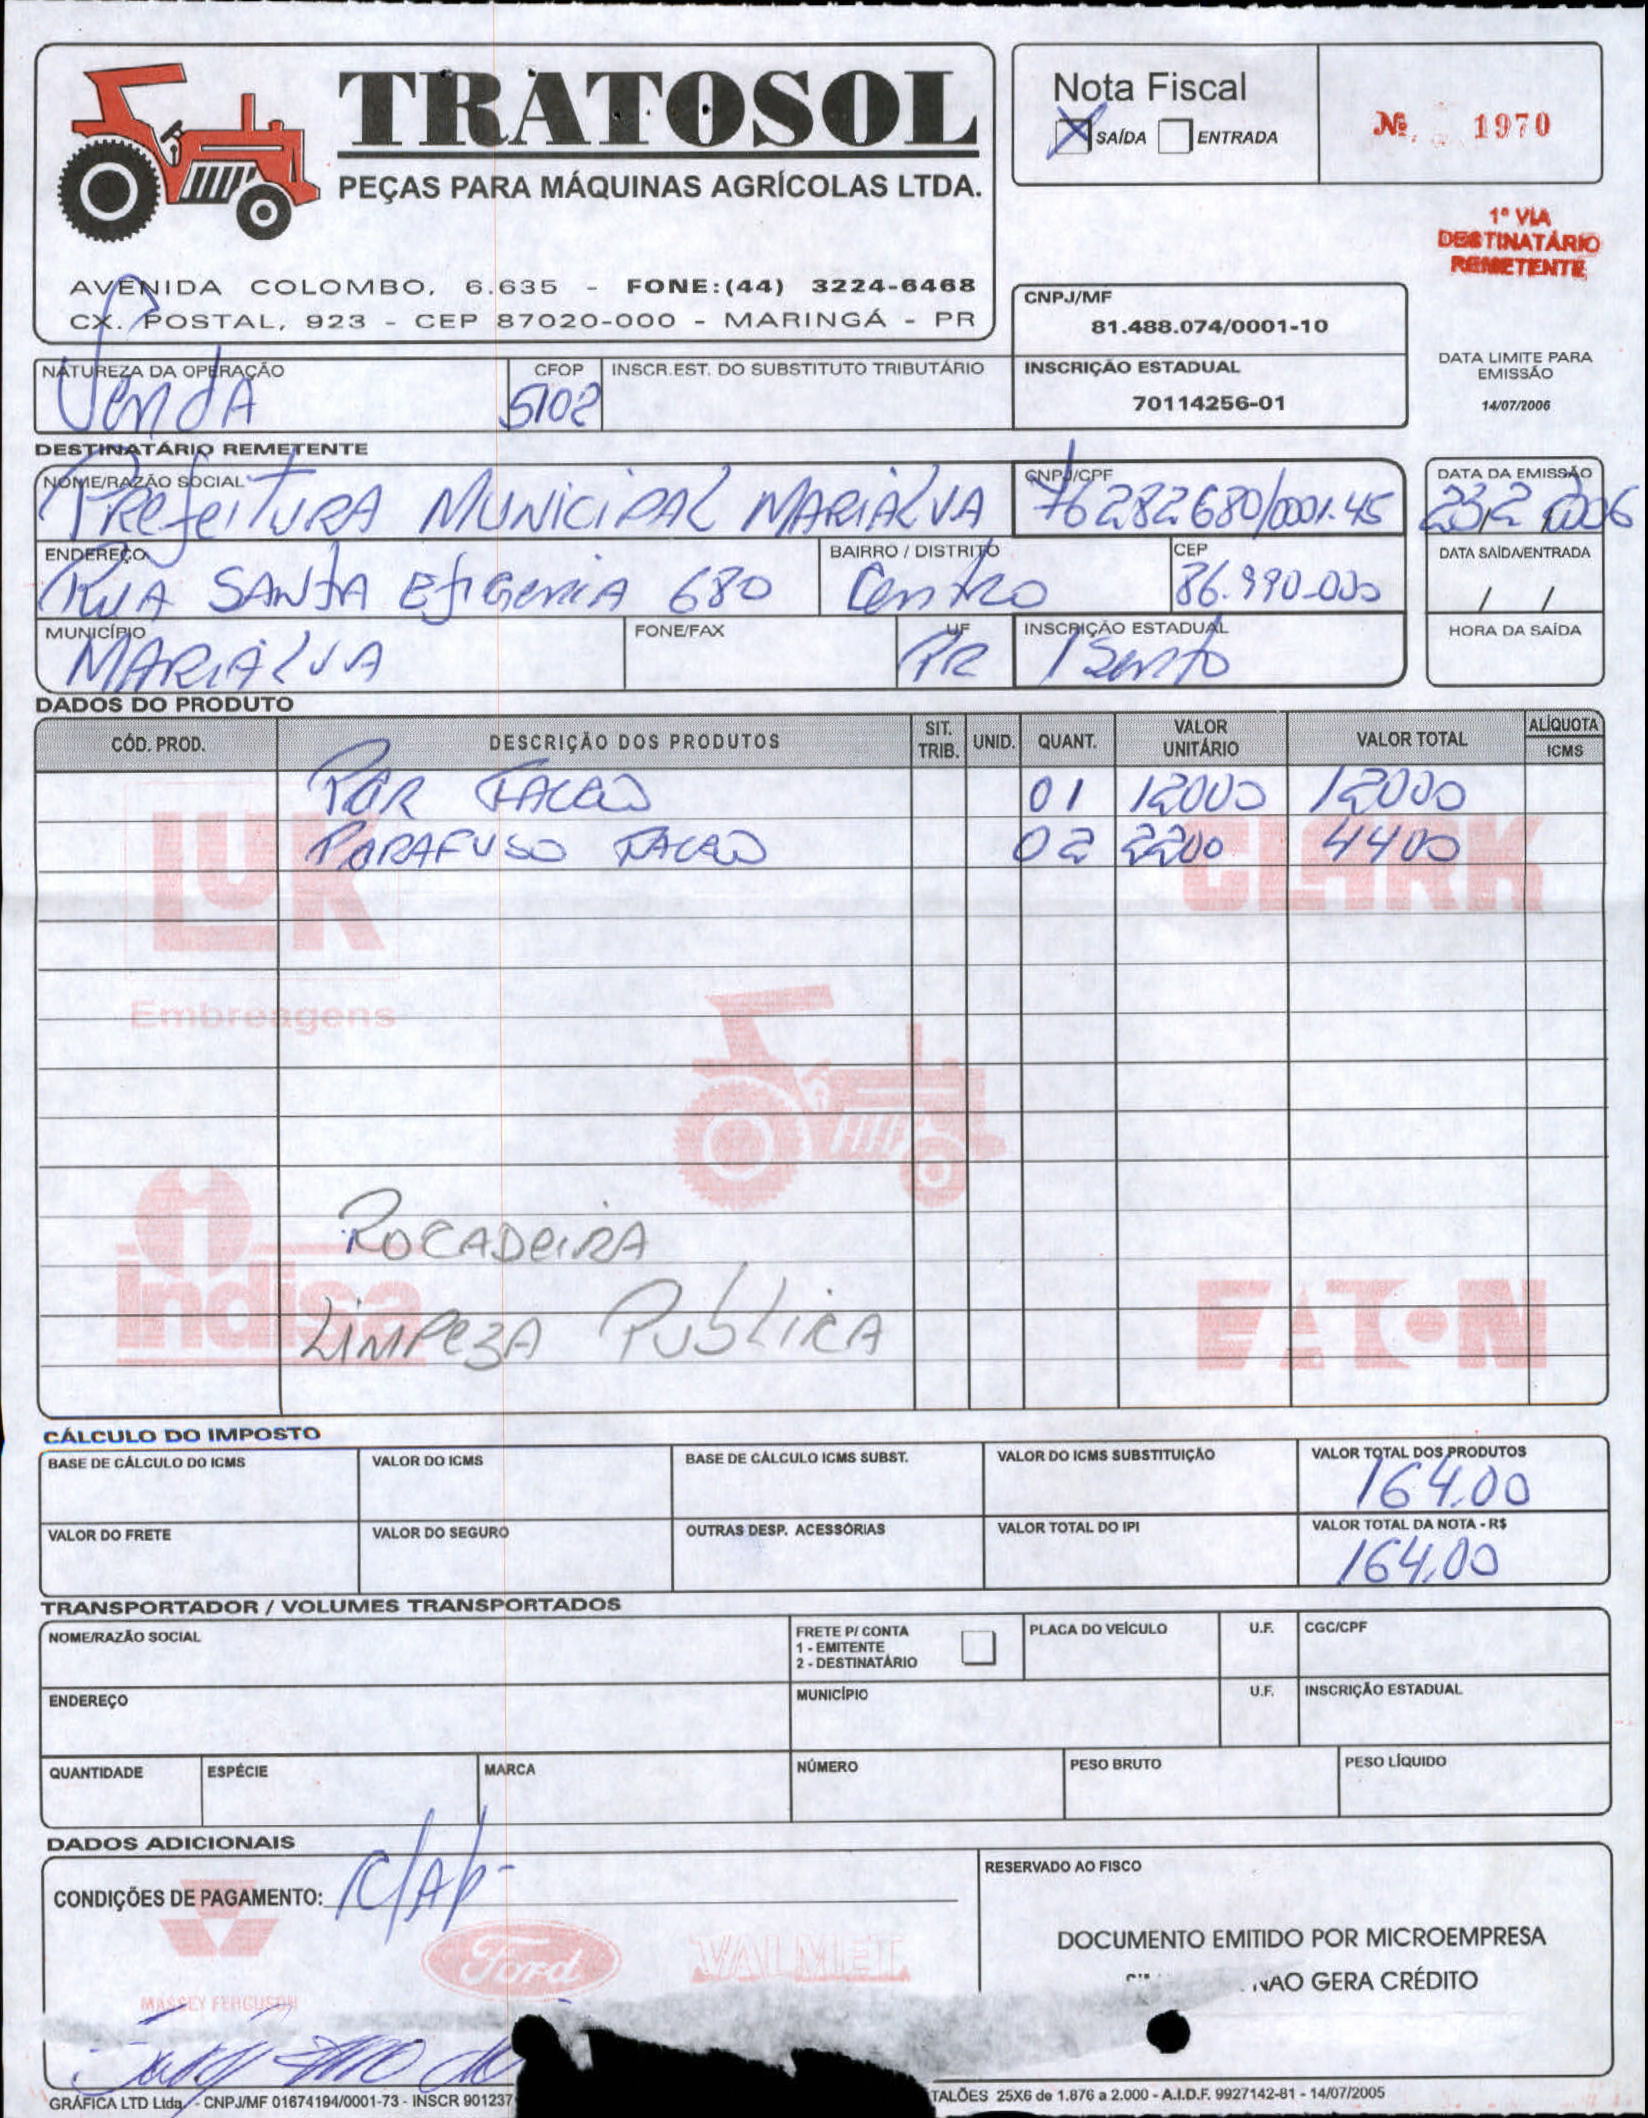 TRATOSOL
PEÇAS PARA MÁQUINAS AGRÍCOLAS LTDA.
AVENIDA COLOMBO, 6.635 - FONE:(44) 3224-6468
CX. POSTAL, 923 - CEP 87020-000 - MARINGÁ - PR
Nota Fiscal
X SAÍDA ENTRADA
Nº 1970
1ª VIA
DESTINATÁRIO
REMETENTE
CNPJ/MF
81.488.074/0001-10
INSCRIÇÃO ESTADUAL
70114256-01
DATA LIMITE PARA
EMISSÃO
14/07/2006
NATUREZA DA OPERAÇÃO CFOP INSCR.EST. DO SUBSTITUTO TRIBUTÁRIO
Venda 5102
DESTINATÁRIO REMETENTE
NOME/RAZÃO SOCIAL CNPJ/CPF DATA DA EMISSÃO
Prefeitura Municipal Marialva 76282680/0001.45 23,2,2006
ENDEREÇO BAIRRO / DISTRITO CEP DATA SAÍDA/ENTRADA
Rua Santa Efigenia 680 Centro 86.990-000 / /
MUNICÍPIO FONE/FAX UF INSCRIÇÃO ESTADUAL HORA DA SAÍDA
Marialva PR Isento
DADOS DO PRODUTO
CÓD. PROD. DESCRIÇÃO DOS PRODUTOS SIT. TRIB. UNID. QUANT. VALOR UNITÁRIO VALOR TOTAL ALÍQUOTA ICMS
Par Facão 01 12000 12000
Parafuso Facão 02 2200 4400
LUK
Embreagens
CLARK
Rocadeira
Indisa
Limpeza Publica
EATON
CÁLCULO DO IMPOSTO
BASE DE CÁLCULO DO ICMS VALOR DO ICMS BASE DE CÁLCULO ICMS SUBST. VALOR DO ICMS SUBSTITUIÇÃO VALOR TOTAL DOS PRODUTOS
164.00
VALOR DO FRETE VALOR DO SEGURO OUTRAS DESP. ACESSÓRIAS VALOR TOTAL DO IPI VALOR TOTAL DA NOTA - R$
164,00
TRANSPORTADOR / VOLUMES TRANSPORTADOS
NOME/RAZÃO SOCIAL FRETE P/ CONTA PLACA DO VEÍCULO U.F. CGC/CPF
1 - EMITENTE
2 - DESTINATÁRIO
ENDEREÇO MUNICÍPIO U.F. INSCRIÇÃO ESTADUAL
QUANTIDADE ESPÉCIE MARCA NÚMERO PESO BRUTO PESO LÍQUIDO
DADOS ADICIONAIS
RESERVADO AO FISCO
CONDIÇÕES DE PAGAMENTO:
MASSEY FERGUSON
Ford
VALMET
DOCUMENTO EMITIDO POR MICROEMPRESA
NAO GERA CRÉDITO
GRÁFICA LTD Ltda. - CNPJ/MF 01674194/0001-73 - INSCR 901237
TALÕES 25X6 de 1.876 a 2.000 - A.I.D.F. 9927142-81 - 14/07/2005